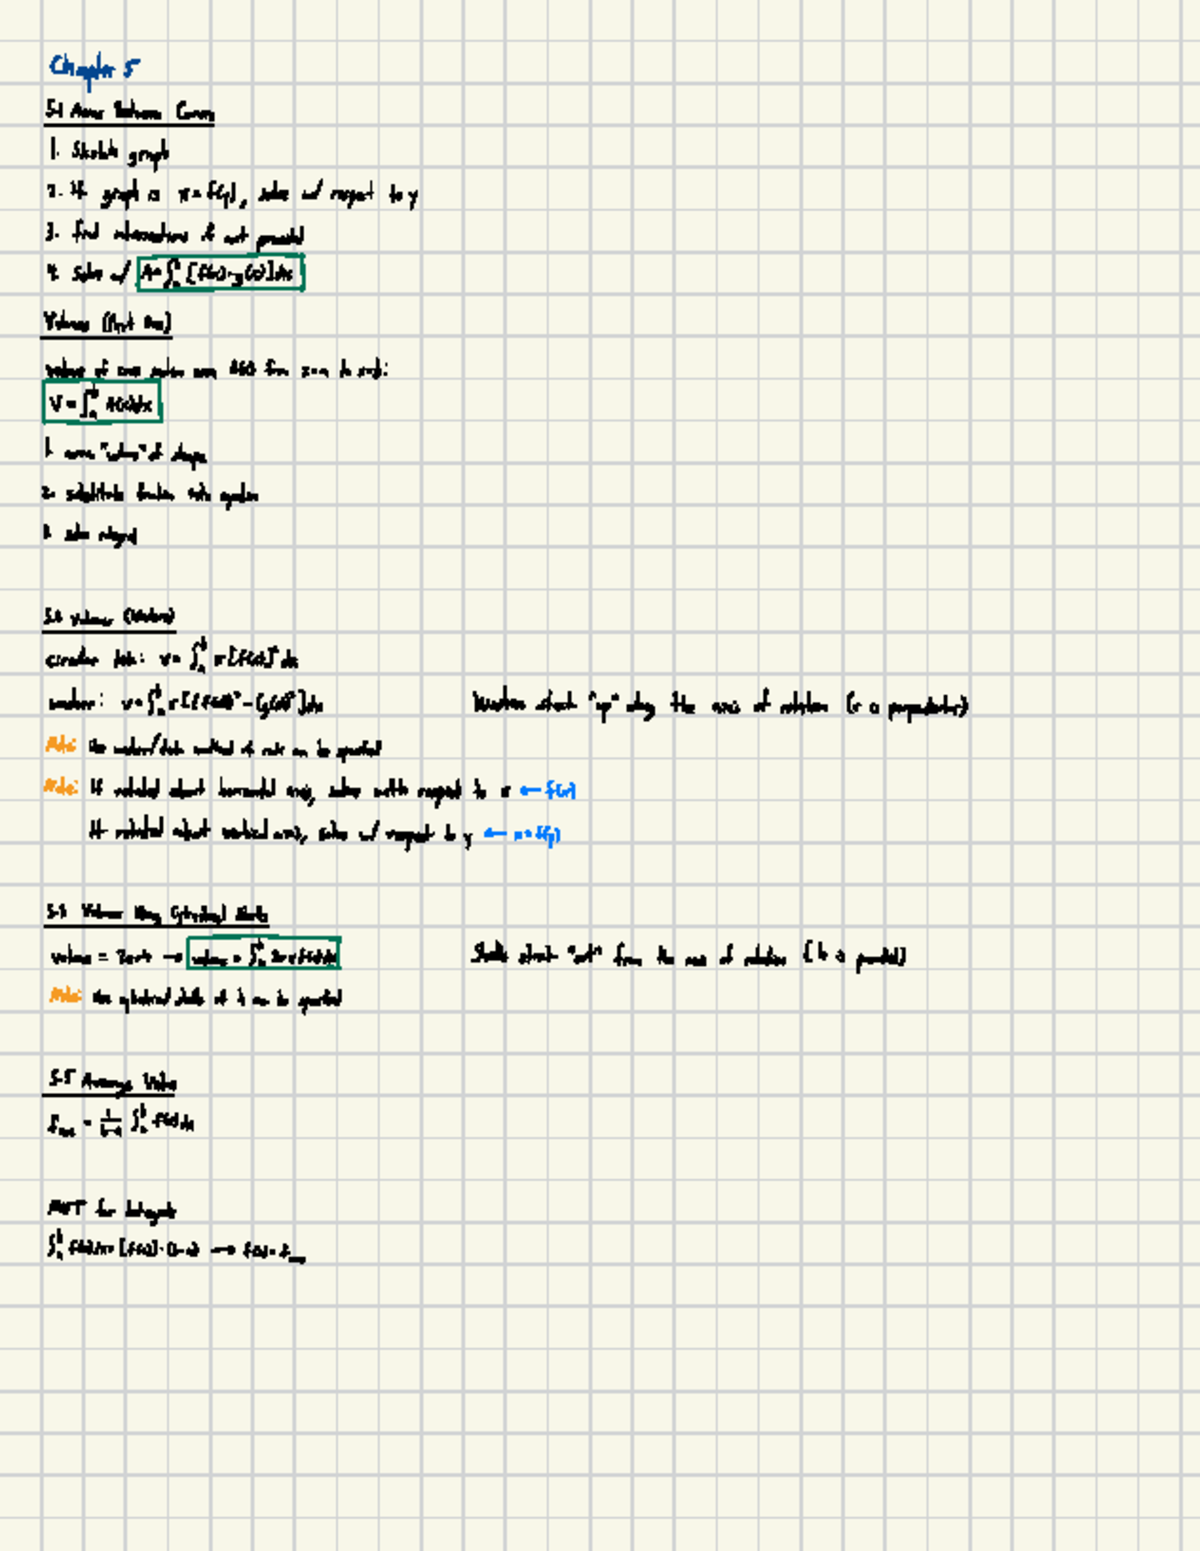 Chapter 5
5.1 Areas Between Curves
1. Sketch graph
2. If graph is x = f(y), solve w/ respect to y
3. find intersections if not provided
4. Solve w/ A=∫ₐᵇ [f(x)-g(x)]dx
Volumes
volume of cross section area A(x) from x=a to x=b:
V = ∫ₐᵇ A(x)dx
1. "volume" of shape
2. substitute function into equation
3. solve integral
Volumes (Washers)
circular disk: V= ∫ₐᵇ π[f(x)]² dx
washer: V=∫ₐᵇ π[(f(x))² - (g(x))²]dx
Washers stack "up" along the axis of rotation (r is perpendicular)
Note: Use washer/disk method if can be specified
Note: If rotated about horizontal axis, solve with respect to x ← f(x)
If rotated about vertical axis, solve w/ respect to y ← x=f(y)
Volumes Using Cylindrical Shells
volume = 2πrh → volume = ∫ₐᵇ 2πx f(x)dx
Shells stack "out" from the axis of rotation (h is parallel)
Note: Use cylindrical shells if h can be specified
5.5 Average Value
f_ave = 1/(b-a) ∫ₐᵇ f(x)dx
MVT for Integrals
∫ₐᵇ f(x)dx = [f(c)]·(b-a) → f(c) = f_ave